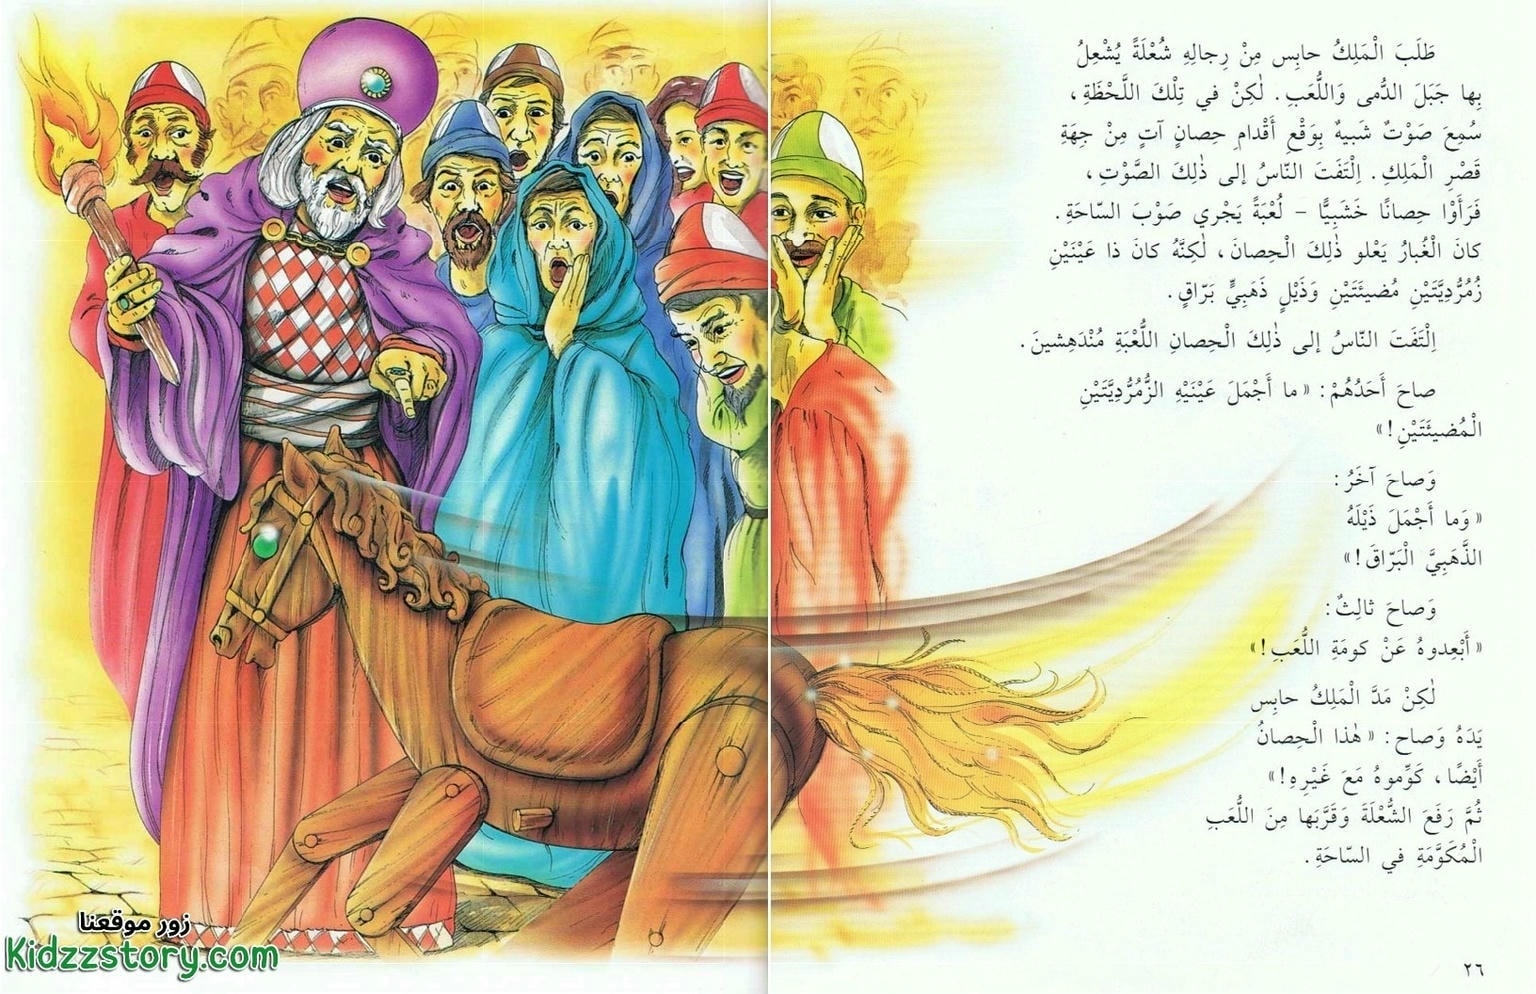 طَلَبَ الْمَلِكُ حابِس مِنْ رِجالِهِ شُعْلَةً يُشْعِلُ
بِها جَبَلَ الدُّمى وَاللُّعَبِ. لٰكِنْ في تِلْكَ اللَّحْظَةِ،
سُمِعَ صَوْتٌ شَبيهٌ بِوَقْعِ أَقْدامِ حِصانٍ آتٍ مِنْ جِهَةِ
قَصْرِ الْمَلِكِ. اِلْتَفَتَ النّاسُ إلى ذٰلِكَ الصَّوْتِ،
فَرَأَوْا حِصانًا خَشَبِيًّا – لُعْبَةً يَجْري صَوْبَ السّاحَةِ.
كانَ الْغُبارُ يَعْلو ذٰلِكَ الْحِصانَ، لٰكِنَّهُ كانَ ذا عَيْنَيْنِ
زُمُرُّدِيَّتَيْنِ مُضيئَتَيْنِ وَذَيْلٍ ذَهَبِيٍّ بَرّاقٍ.
اِلْتَفَتَ النّاسُ إلى ذٰلِكَ الْحِصانِ اللُّعْبَةِ مُنْدَهِشينَ.
صاحَ أَحَدُهُمْ: «ما أَجْمَلَ عَيْنَيْهِ الزُّمُرُّدِيَّتَيْنِ
الْمُضيئَتَيْنِ!»
وَصاحَ آخَرُ:
«وَما أَجْمَلَ ذَيْلَهُ
الذَّهَبِيَّ الْبَرّاقَ!»
وَصاحَ ثالِثٌ:
«أَبْعِدوهُ عَنْ كومَةِ اللُّعَبِ!»
لٰكِنْ مَدَّ الْمَلِكُ حابِس
يَدَهُ وَصاح: «هٰذا الْحِصانُ
أَيْضًا، كَوِّموهُ مَعَ غَيْرِهِ!»
ثُمَّ رَفَعَ الشُّعْلَةَ وَقَرَّبَها مِنَ اللُّعَبِ
الْمُكَوَّمَةِ في السّاحَةِ.
زور موقعنا
Kidzzstory.com
٢٦